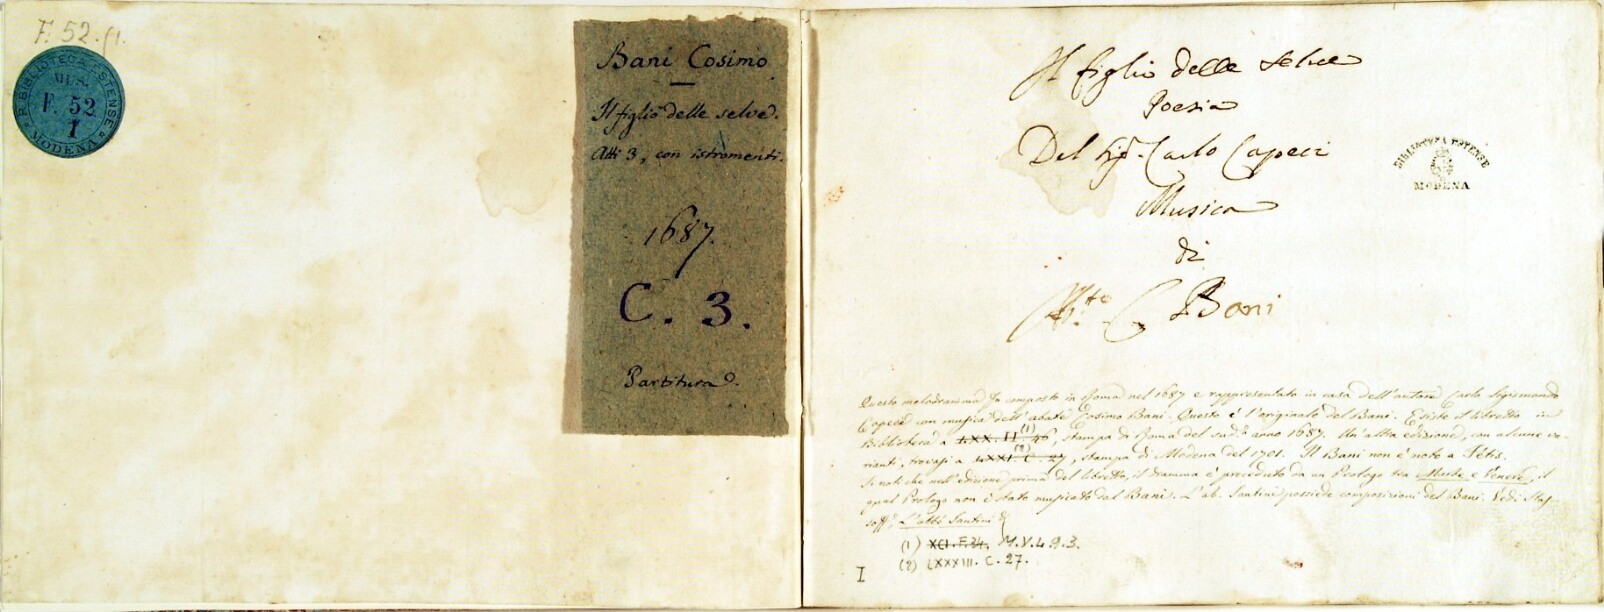 F. 52. (1.
R. BIBLIOTECA ESTENSE
MUS.
F. 52
1
MODENA
Bani Cosimo
Il figlio delle selve.
Atti 3, con istromenti.
1687.
C. 3.
Partitura.
Il figlio delle selve
Poesia
Del Sigr. Carlo Capeci
Musica
di
C Bani
BIBLIOTECA ESTENSE
MODENA
Questo melodramma fu composto in Roma nel 1687 e rappresentato in casa dell'autore Carlo Sigismondo
Capeci con musica dell'abate Cosimo Bani. Questo è l'originale del Bani. Esiste il libretto in
Biblioteca a LXX. II. 46 (1), stampa di Roma del sud.o anno 1687. Un'altra edizione, con alcune va-
rianti, trovasi a LXXI. C. 27 (2), stampa di Modena del 1701. Il Bani non è noto a Fétis.
Si noti che nell'edizione prima del libretto, il dramma è preceduto da un Prologo tra Marte e Venere, il
qual Prologo non è stato musicato dal Bani. L'ab. Santini possiede composizioni del Bani. Vedi Stas-
soff, L'abbé Santini &
(1) XCI. F. 34. M.V.4.9.3.
(2) LXXXIII. C. 27.
I